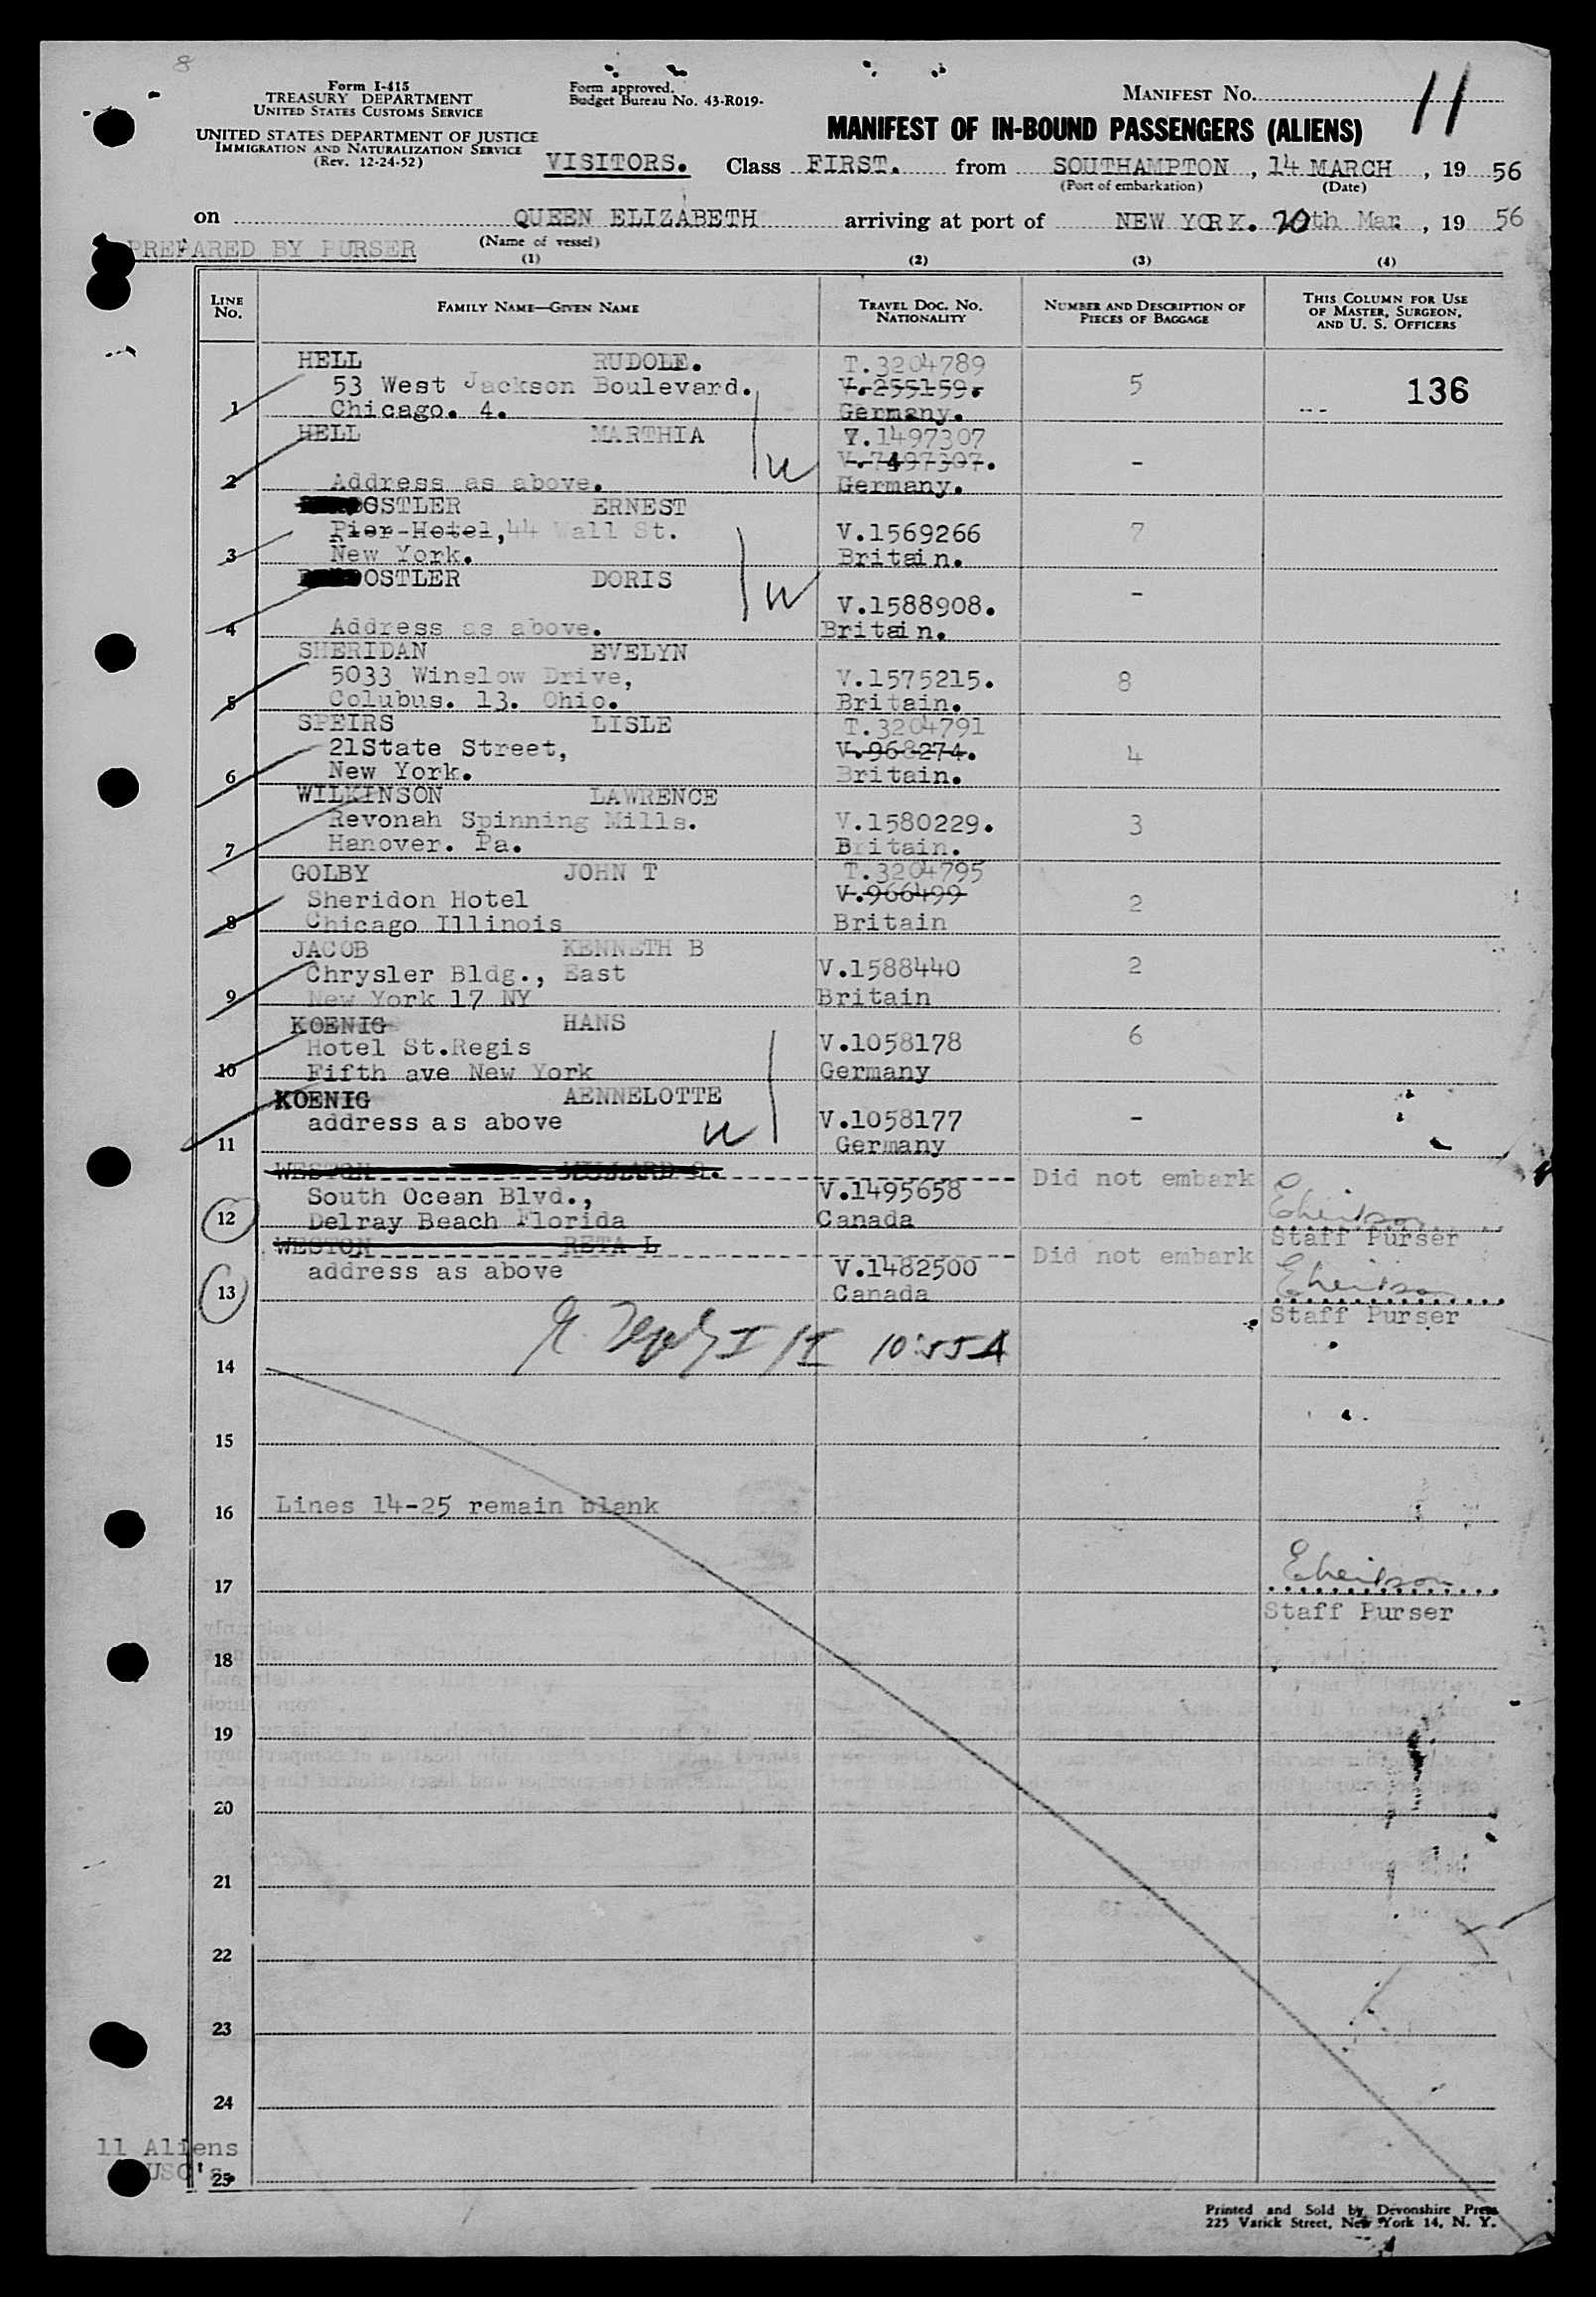 8
Form I-415
TREASURY DEPARTMENT
UNITED STATES CUSTOMS SERVICE
UNITED STATES DEPARTMENT OF JUSTICE
IMMIGRATION AND NATURALIZATION SERVICE
(Rev. 12-24-52)
Form approved.
Budget Bureau No. 43-R019-
MANIFEST No. 11
MANIFEST OF IN-BOUND PASSENGERS (ALIENS)
VISITORS. Class FIRST. from SOUTHAMPTON, 14 MARCH, 19 56
(Port of embarkation) (Date)
on QUEEN ELIZABETH arriving at port of NEW YORK. 20th Mar., 19 56
(Name of vessel)
PREPARED BY PURSER
(1) (2) (3) (4)
LINE No. FAMILY NAME—GIVEN NAME TRAVEL DOC. NO. NATIONALITY NUMBER AND DESCRIPTION OF PIECES OF BAGGAGE THIS COLUMN FOR USE OF MASTER, SURGEON, AND U. S. OFFICERS
HELL RUDOLF. T.3204789
53 West Jackson Boulevard. V.255159. 5 136
1 Chicago. 4. Germany.
HELL MARTHIA V.1497307
V.7497307. -
2 Address as above. Germany.
OSTLER ERNEST
Pier-Hotel,44 Wall St. V.1569266 7
3 New York. Britain.
OSTLER DORIS
V.1588908. -
4 Address as above. Britain.
SHERIDAN EVELYN
5033 Winslow Drive, V.1575215. 8
5 Colubus. 13. Ohio. Britain.
SPEIRS LISLE T.3204791
21State Street, V.968274. 4
6 New York. Britain.
WILKINSON LAWRENCE
Revonah Spinning Mills. V.1580229. 3
7 Hanover. Pa. Britain.
GOLBY JOHN T T.3204795
Sheridon Hotel V.966499 2
8 Chicago Illinois Britain
JACOB KENNETH B
Chrysler Bldg., East V.1588440 2
9 New York 17 NY Britain
KOENIG HANS
Hotel St.Regis V.1058178 6
10 Fifth ave New York Germany
KOENIG AENNELOTTE
address as above V.1058177 -
11 Germany
WESTON WILLARD G. Did not embark
South Ocean Blvd., V.1495658
12 Delray Beach Florida Canada
Staff Purser
WESTON RETA L Did not embark
address as above V.1482500
13 Canada
Staff Purser
10:55 A
14
15
16 Lines 14-25 remain blank
17
Staff Purser
18
19
20
21
22
23
24
11 Aliens
USC's.
25
Printed and Sold by Devonshire Press
225 Varick Street, New York 14, N. Y.